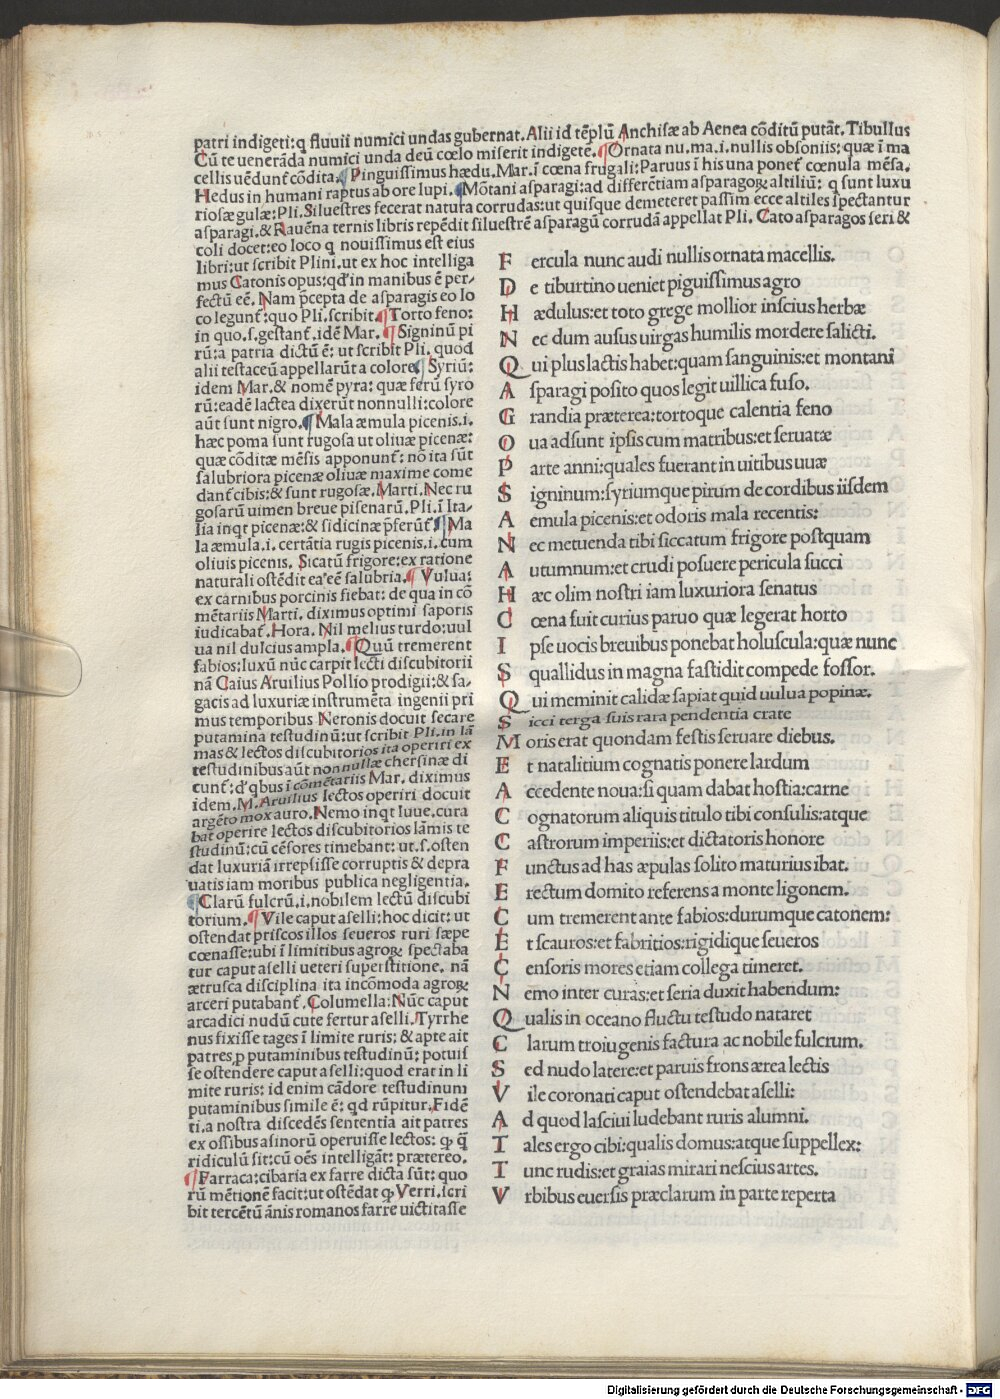 patri indigeti:q fluuii numici undas gubernat.Alii id tēplū Anchisæ ab Aenea cōditū putāt.Tibullus
Cū te uenerāda numici unda deū cœlo miserit indigete.¶Ornata nu.ma.i.nullis obsoniis; quæ ī ma
cellis uēdunt᷑ cōdita.¶Pinguissimus hædu.Mar.ī cœna frugali:Paruus ī his una ponet᷑ cœnula mēsa.
Hedus in humani raptus ab ore lupi.¶Mōtani asparagi:ad differētiam asparagoꝝ altiliū: q sunt luxu
riosæ gulæ:Pli.Siluestres fecerat natura corrudas:ut quisque demeteret passim ecce altiles spectantur
asparagi.& Rauēna ternis libris repēdit siluestrē asparagū corrudā appellat Pli. Cato asparagos seri &
coli docet:eo loco q nouissimus est eius
libri:ut scribit Plini.ut ex hoc intelliga
mus Catonis opus:qđ in manibus ē per-
fectū eē. Nam p̄cepta de asparagis eo lo
co legunt᷑:quo Pli.scribit.¶Torto feno:
in quo.s.gestant᷑.idē Mar.¶Signinū pi
rū:a patria dictū ē: ut scribit Pli. quod
alii testaceū appellarūt a colore.¶Syriū:
idem Mar.& nomē pyra: quæ ferū syro
rū:eadē lactea dixerūt nonnulli:colore
aūt sunt nigro.¶Mala æmula picenis.i.
hæc poma sunt rugosa ut oliuæ picenæ:
quæ cōditæ mēsis apponunt᷑: nō ita sūt
salubriora picenæ oliuæ maxime come
dant᷑ cibis:& sunt rugosæ.Marti.Nec ru
gosarū uimen breue pisenarū.Pli.ī Ita-
lia inqt picenæ:& sidicinæ p̄ferūt᷑.¶Ma
la æmula.i.certātia rugis picenis.i.cum
oliuis picenis. Sicatū frigore:ex ratione
naturali ostēdit ea'eē salubria.¶Vulua:
ex carnibus porcinis fiebat: de qua in cō
mētariis Marti. diximus optimi saporis
iudicabat᷑.Hora. Nil melius turdo:uul
ua nil dulcius ampla.¶Quū tremerent
fabios:luxū nūc carpit lecti discubitorii
nā Caius Aruilius Pollio prodigii:& sa-
gacis ad luxuriæ instrumēta ingenii pri
mus temporibus Neronis docuit secare
putamina testudinū:ut scribit Pli.in lā
mas & lectos discubitorios ita operiri ex
testudinibus aūt nonnullæ chersinæ di
cunt᷑:đ qbus ī cōmētariis Mar. diximus
idem.M.Aruilius lectos operiri docuit
argēto mox auro.Nemo inqt Iuue.cura
bat operire lectos discubitorios lāmis te
studinū:cū cēsores timebant: ut.s.osten
dat luxuriā irrepsisse corruptis & depra
uatis iam moribus publica negligentia.
¶Clarū fulcrū.i.nobilem lectū discubi
torium.¶Vile caput aselli:hoc dicit: ut
ostendat priscos illos seueros ruri sæpe
cœnasse:ubi ī limitibus agroꝝ spectaba
tur caput aselli ueteri superstitione. nā
ætrusca disciplina ita incōmoda agroꝝ
arceri putabant᷑. Columella:Nūc caput
arcadici nudū cute fertur aselli.Tyrrhe
nus fixisse tages ī limite ruris: & apte ait
patres p putaminibus testudinū: potuis
se ostendere caput aselli:quod erat in li
mite ruris: id enim cādore testudinum
putaminibus simile ē: qđ rūpitur.Fidē
ti.a nostra discedēs sententia ait patres
ex ossibus asinorū operuisse lectos: ꝙ q̄
ridiculū sit:cū oēs intelligāt: prætereo.
¶Farraca:cibaria ex farre dicta sūt: quo
rū mētionē facit:ut ostēdat ꝙ Verri.scri
bit tercētū ānis romanos farre uictitasse
F ercula nunc audi nullis ornata macellis.
D e tiburtino ueniet piguissimus agro
H ædulus:et toto grege mollior inscius herbæ
N ec dum ausus uirgas humilis mordere salicti.
Q ui plus lactis habet:quam sanguinis:et montani
A sparagi posito quos legit uillica fuso.
G randia præterea:tortoque calentia feno
O ua adsunt ipsis cum matribus:et seruatæ
P arte anni:quales fuerant in uitibus uuæ
S igninum:syriumque pirum de cordibus iisdem
A emula picenis:et odoris mala recentis:
N ec metuenda tibi siccatum frigore postquam
A utumnum:et crudi posuere pericula succi
H æc olim nostri iam luxuriora senatus
C œna fuit curius paruo quæ legerat horto
I pse uocis breuibus ponebat holuscula:quæ nunc
S quallidus in magna fastidit compede fossor.
Q ui meminit calidæ sapiat quid uulua popinæ.
S icci terga suis rara pendentia crate
M oris erat quondam festis seruare diebus.
E t natalitium cognatis ponere lardum
A ccedente noua:si quam dabat hostia:carne
C ognatorum aliquis titulo tibi consulis:atque
C astrorum imperiis:et dictatoris honore
F unctus ad has æpulas solito maturius ibat.
E rectum domito referens a monte ligonem.
C um tremerent ante fabios:durumque catonem:
E t scauros:et fabritios:rigidique seueros
C ensoris mores etiam collega timeret.
N emo inter curas:et seria duxit habendum:
Q ualis in oceano fluctu testudo nataret
C larum troiugenis factura ac nobile fulcrum.
S ed nudo latere:et paruis frons ærea lectis
V ile coronati caput ostendebat aselli:
A d quod lasciui ludebant ruris alumni.
T ales ergo cibi:qualis domus:atque suppellex:
T unc rudis:et graias mirari nescius artes.
V rbibus euersis præclarum in parte reperta
Digitalisierung gefördert durch die Deutsche Forschungsgemeinschaft - DFG